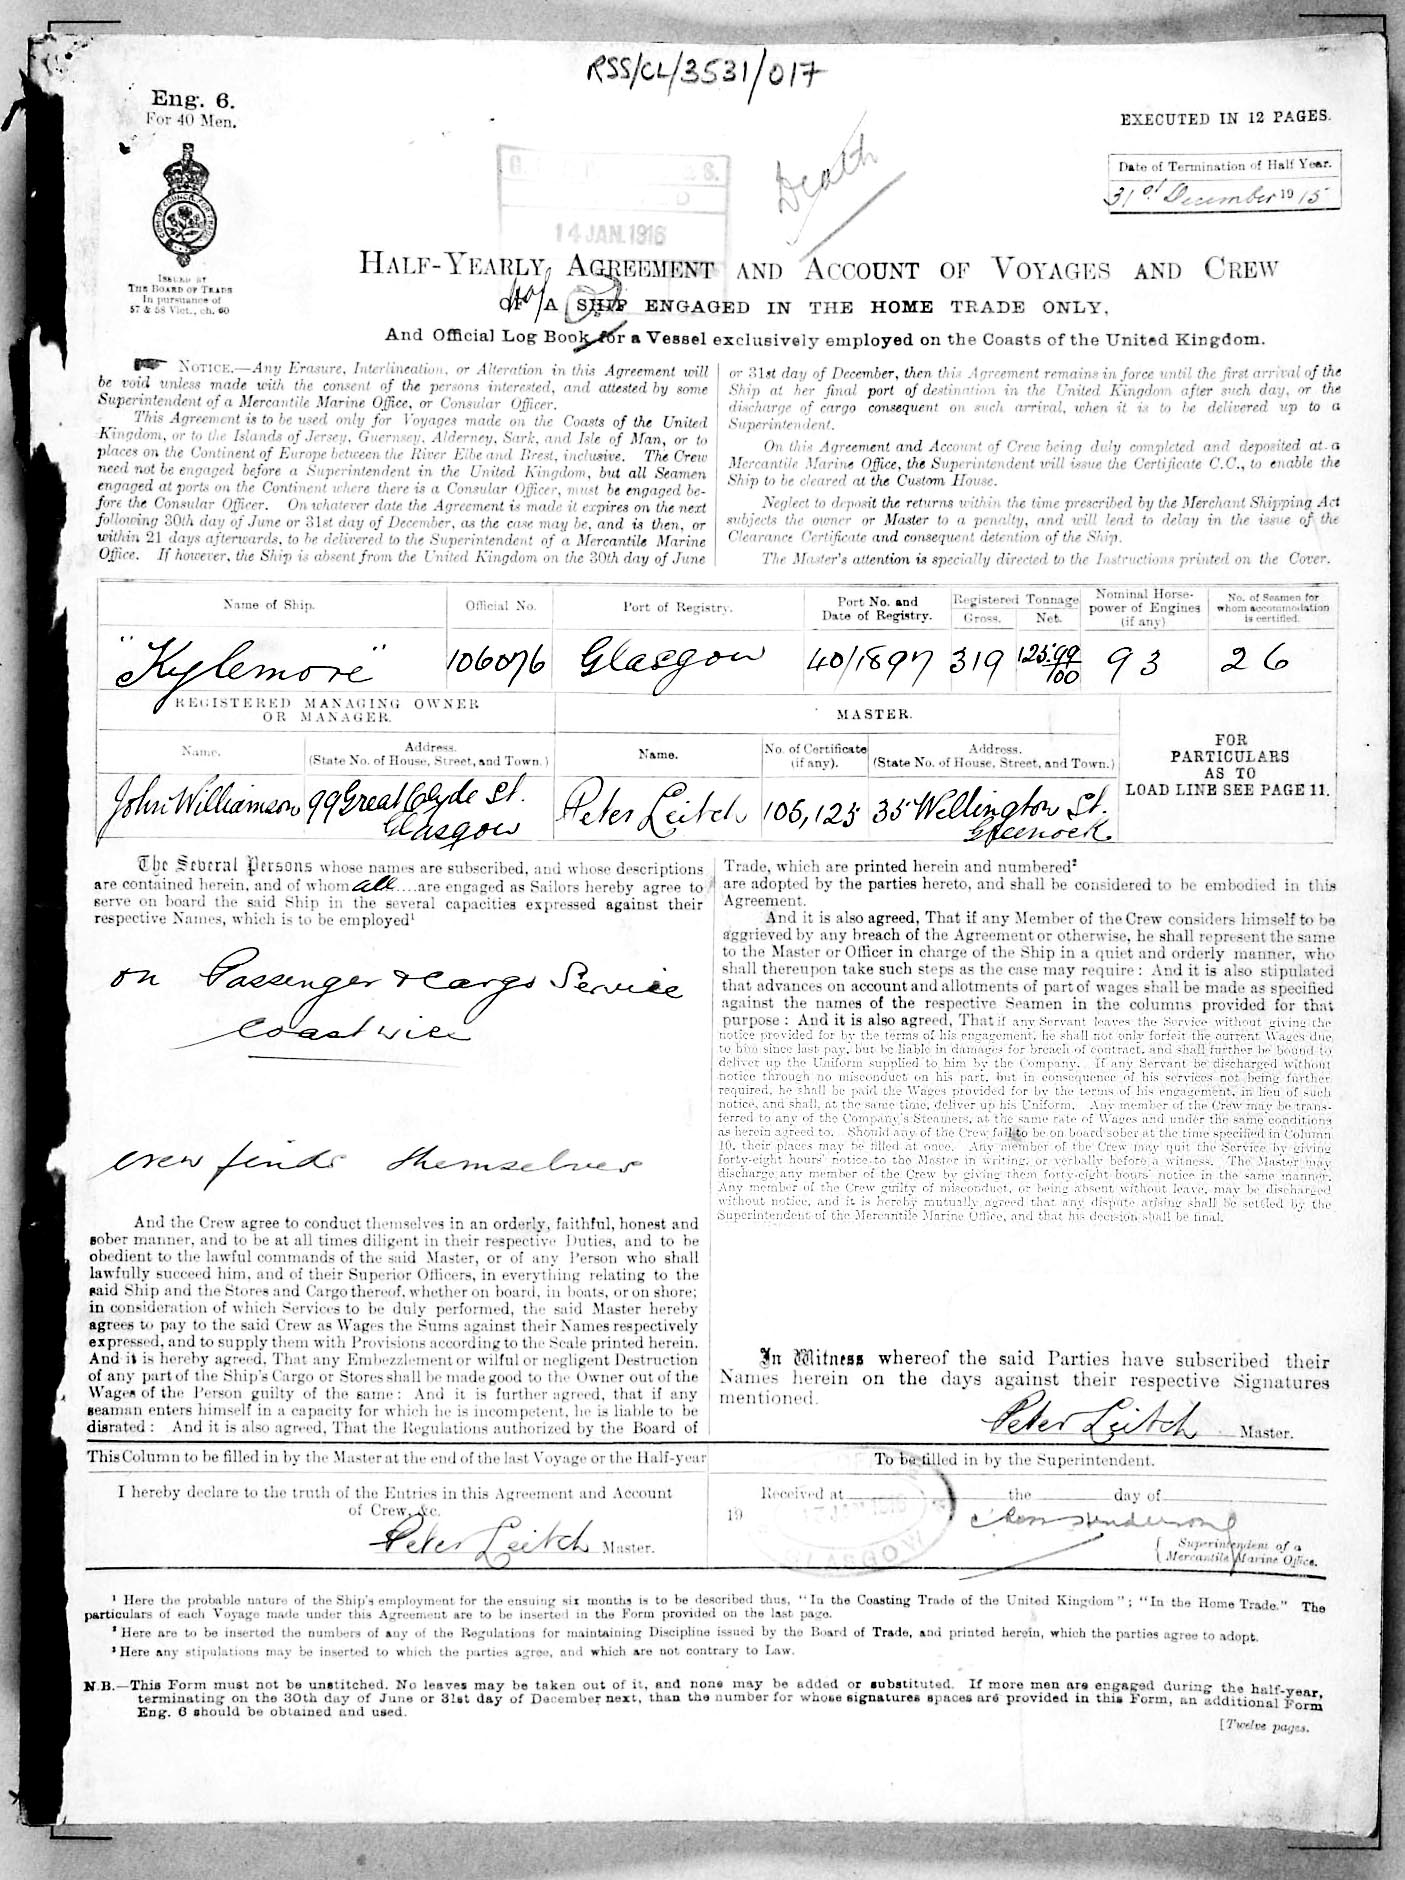 RSS/CL/3531/017
Eng. 6.
For 40 Men.
EXECUTED IN 12 PAGES.
Date of Termination of Half Year.
31st December 1915
Death
14 JAN. 1916
ISSUED BY
THE BOARD OF TRADE
In pursuance of
57 & 58 Vict., ch. 60
HALF-YEARLY AGREEMENT AND ACCOUNT OF VOYAGES AND CREW
OF A SHIP ENGAGED IN THE HOME TRADE ONLY,
And Official Log Book for a Vessel exclusively employed on the Coasts of the United Kingdom.
NOTICE.—Any Erasure, Interlineation, or Alteration in this Agreement will
be void unless made with the consent of the persons interested, and attested by some
Superintendent of a Mercantile Marine Office, or Consular Officer.
This Agreement is to be used only for Voyages made on the Coasts of the United
Kingdom, or to the Islands of Jersey, Guernsey, Alderney, Sark, and Isle of Man, or to
places on the Continent of Europe between the River Elbe and Brest, inclusive. The Crew
need not be engaged before a Superintendent in the United Kingdom, but all Seamen
engaged at ports on the Continent where there is a Consular Officer, must be engaged be-
fore the Consular Officer. On whatever date the Agreement is made it expires on the next
following 30th day of June or 31st day of December, as the case may be, and is then, or
within 21 days afterwards, to be delivered to the Superintendent of a Mercantile Marine
Office. If however, the Ship is absent from the United Kingdom on the 30th day of June
or 31st day of December, then this Agreement remains in force until the first arrival of the
Ship at her final port of destination in the United Kingdom after such day, or the
discharge of cargo consequent on such arrival, when it is to be delivered up to a
Superintendent.
On this Agreement and Account of Crew being duly completed and deposited at a
Mercantile Marine Office, the Superintendent will issue the Certificate C.C., to enable the
Ship to be cleared at the Custom House.
Neglect to deposit the returns within the time prescribed by the Merchant Shipping Act
subjects the owner or Master to a penalty, and will lead to delay in the issue of the
Clearance Certificate and consequent detention of the Ship.
The Master's attention is specially directed to the Instructions printed on the Cover.
Name of Ship. Official No. Port of Registry. Port No. and Date of Registry. Registered Tonnage Gross. Net. Nominal Horse-power of Engines (if any) No. of Seamen for whom accommodation is certified.
"Kylemore" 106076 Glasgow 40/1897 319 125 99/100 93 26
REGISTERED MANAGING OWNER
OR MANAGER.
MASTER.
FOR
PARTICULARS
AS TO
LOAD LINE SEE PAGE 11.
Name. Address. (State No. of House, Street, and Town.) Name. No. of Certificate (if any). Address. (State No. of House, Street, and Town.)
John Williamson 99 Great Clyde St. Glasgow Peter Leitch 105,125 35 Wellington St. Greenock
The Several Persons whose names are subscribed, and whose descriptions
are contained herein, and of whom all are engaged as Sailors hereby agree to
serve on board the said Ship in the several capacities expressed against their
respective Names, which is to be employed¹
on Passenger & Cargo Service
Coastwise
Crew finds themselves
And the Crew agree to conduct themselves in an orderly, faithful, honest and
sober manner, and to be at all times diligent in their respective Duties, and to be
obedient to the lawful commands of the said Master, or of any Person who shall
lawfully succeed him, and of their Superior Officers, in everything relating to the
said Ship and the Stores and Cargo thereof, whether on board, in boats, or on shore;
in consideration of which Services to be duly performed, the said Master hereby
agrees to pay to the said Crew as Wages the Sums against their Names respectively
expressed, and to supply them with Provisions according to the Scale printed herein.
And it is hereby agreed, That any Embezzlement or wilful or negligent Destruction
of any part of the Ship's Cargo or Stores shall be made good to the Owner out of the
Wages of the Person guilty of the same: And it is further agreed, that if any
seaman enters himself in a capacity for which he is incompetent, he is liable to be
disrated: And it is also agreed, That the Regulations authorized by the Board of
Trade, which are printed herein and numbered²
are adopted by the parties hereto, and shall be considered to be embodied in this
Agreement.
And it is also agreed, That if any Member of the Crew considers himself to be
aggrieved by any breach of the Agreement or otherwise, he shall represent the same
to the Master or Officer in charge of the Ship in a quiet and orderly manner, who
shall thereupon take such steps as the case may require: And it is also stipulated
that advances on account and allotments of part of wages shall be made as specified
against the names of the respective Seamen in the columns provided for that
purpose: And it is also agreed, That if any Servant leaves the Service without giving the
notice provided for by the terms of his engagement, he shall not only forfeit the current Wages due
to him since last pay, but be liable in damages for breach of contract, and shall further be bound to
deliver up the Uniform supplied to him by the Company. If any Servant be discharged without
notice through no misconduct on his part, but in consequence of his services not being further
required, he shall be paid the Wages provided for by the terms of his engagement, in lieu of such
notice, and shall, at the same time, deliver up his Uniform. Any member of the Crew may be trans-
ferred to any of the Company's Steamers, at the same rate of Wages and under the same conditions
as herein agreed to. Should any of the Crew fail to be on board sober at the time specified in Column
10, their places may be filled at once. Any member of the Crew may quit the Service by giving
forty-eight hours' notice to the Master in writing, or verbally before a witness. The Master may
discharge any member of the Crew by giving them forty-eight hours' notice in the same manner.
Any member of the Crew guilty of misconduct, or being absent without leave, may be discharged
without notice, and it is hereby mutually agreed that any dispute arising shall be settled by the
Superintendent of the Mercantile Marine Office, and that his decision shall be final.
In Witness whereof the said Parties have subscribed their
Names herein on the days against their respective Signatures
mentioned.
Peter Leitch Master.
This Column to be filled in by the Master at the end of the last Voyage or the Half-year
To be filled in by the Superintendent.
I hereby declare to the truth of the Entries in this Agreement and Account
of Crew, &c.
Peter Leitch Master.
Received at the day of
19
GLASGOW
Superintendent of a
Mercantile Marine Office.
¹ Here the probable nature of the Ship's employment for the ensuing six months is to be described thus, "In the Coasting Trade of the United Kingdom"; "In the Home Trade." The
particulars of each Voyage made under this Agreement are to be inserted in the Form provided on the last page.
² Here are to be inserted the numbers of any of the Regulations for maintaining Discipline issued by the Board of Trade, and printed herein, which the parties agree to adopt.
³ Here any stipulations may be inserted to which the parties agree, and which are not contrary to Law.
N.B.—This Form must not be unstitched. No leaves may be taken out of it, and none may be added or substituted. If more men are engaged during the half-year,
terminating on the 30th day of June or 31st day of December next, than the number for whose signatures spaces are provided in this Form, an additional Form
Eng. 6 should be obtained and used.
[Twelve pages.